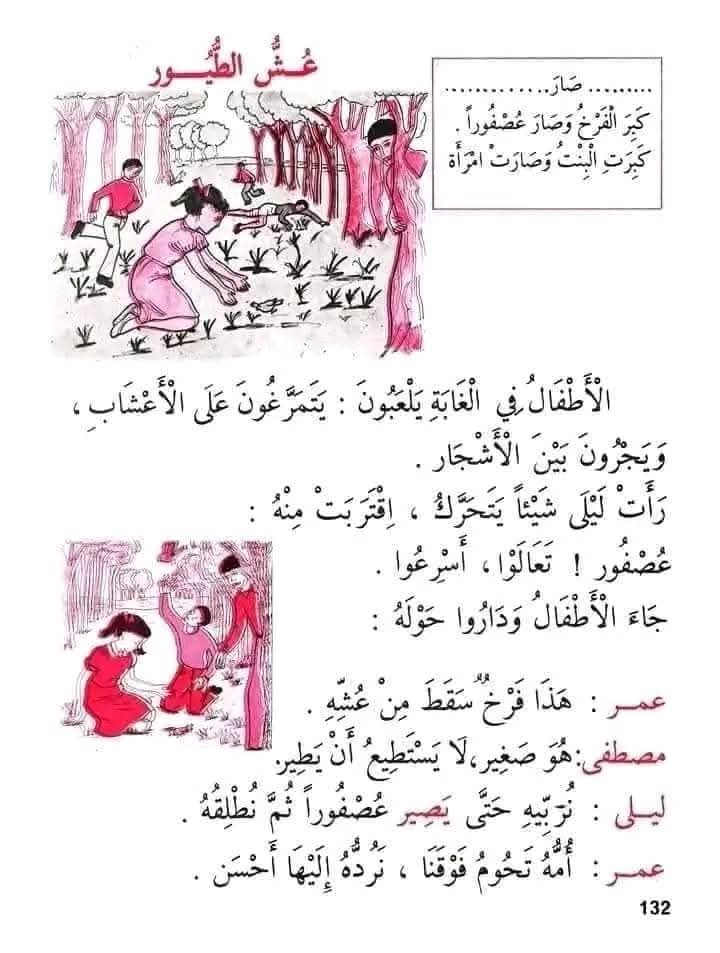 عُـشُّ الطُّيُـور
......... صَارَ.............
كَبِرَ الْفَرْخُ وَصَارَ عُصْفُوراً .
كَبِرَتِ الْبِنْتُ وَصَارَتْ امْرَأَة
الْأَطْفَالُ فِي الْغَابَةِ يَلْعَبُونَ : يَتَمَرَّغُونَ عَلَى الْأَعْشَابِ ،
وَيَجْرُونَ بَيْنَ الْأَشْجَار .
رَأَتْ لَيْلَى شَيْئاً يَتَحَرَّكُ ، اِقْتَرَبَتْ مِنْهُ :
عُصْفُور ! تَعَالَوْا ، أَسْرِعُوا .
جَاءَ الْأَطْفَالُ وَدَارُوا حَوْلَهُ :
عمـر : هَذَا فَرْخٌ سَقَطَ مِنْ عُشِّهِ .
مصطفى: هُوَ صَغِير، لَا يَسْتَطِيعُ أَنْ يَطِير.
ليـلى : نُرَبِّيهِ حَتَّى يَصِير عُصْفُوراً ثُمَّ نُطْلِقُهُ .
عمـر : أُمُّهُ تَحُومُ فَوْقَنَا ، نَرُدُّهُ إِلَيْهَا أَحْسَن .
132